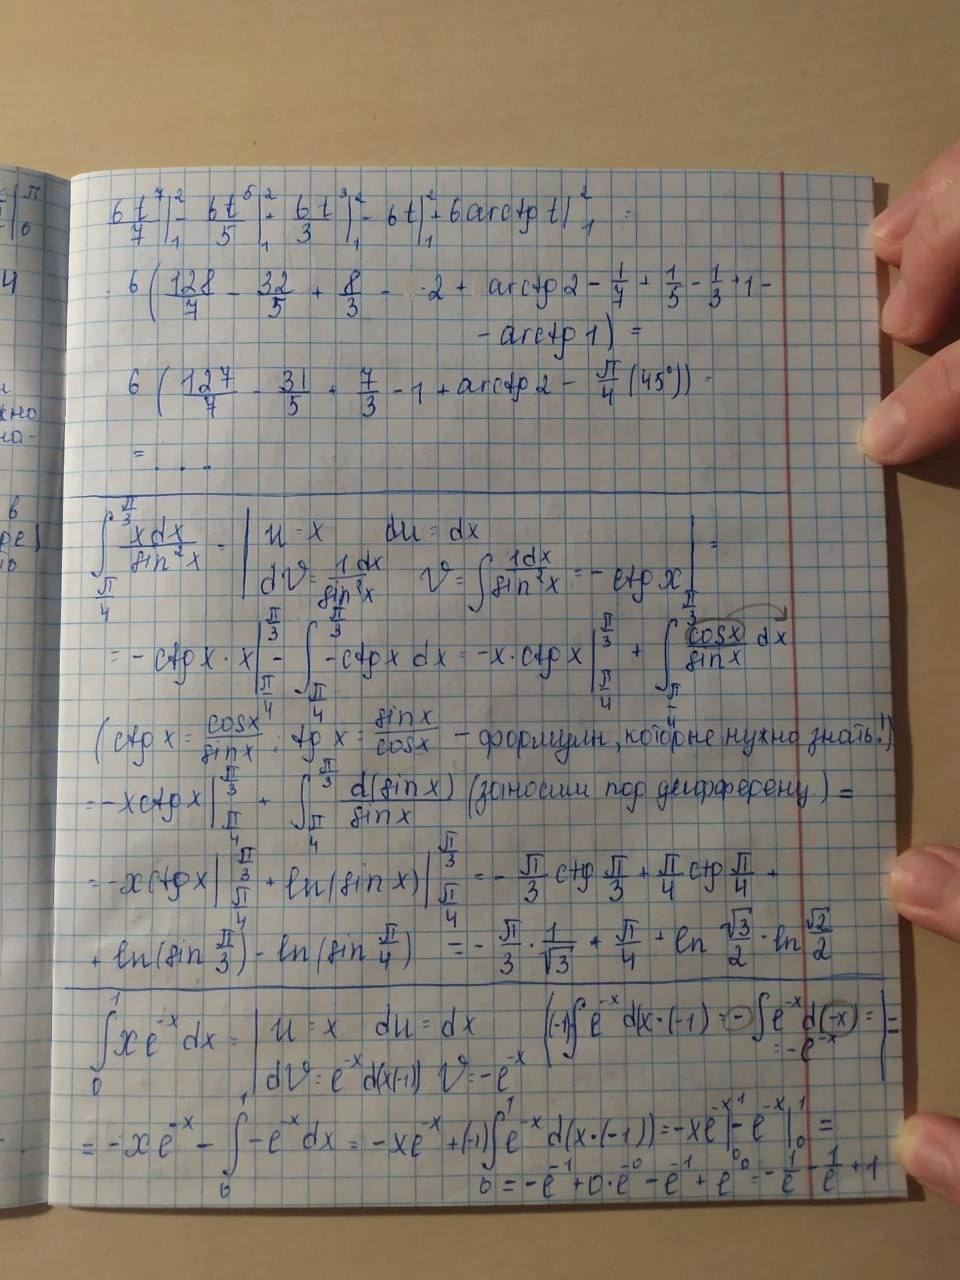 π
0
4
6t⁷/7|₁² - 6t⁵/5|₁² + 6t³/3|₁² - 6t|₁² + 6arctg t|₁² =
6(128/7 - 32/5 + 8/3 - 2 + arctg2 - 1/7 + 1/5 - 1/3 + 1 -
- arctg 1) =
6(127/7 - 31/5 + 7/3 - 1 + arctg2 - π/4 (45°))
= . . .
∫_{π/4}^{π/3} xdx/sin²x = | u = x du = dx
dv = 1dx/sin²x v = ∫ 1dx/sin²x = - ctg x | =
= - ctg x · x|_{π/4}^{π/3} - ∫_{π/4}^{π/3} -ctgx dx = -x·ctgx|_{π/4}^{π/3} + ∫_{π/4}^{π/3} cosx/sinx dx
(ctgx = cosx/sinx ; tgx = sinx/cosx - формулы, которые нужно знать!)
= -xctgx|_{π/4}^{π/3} + ∫_{π/4}^{π/3} d(sinx)/sinx (заносим под дифференц.) =
= -xctgx|_{π/4}^{π/3} + ln(sinx)|_{π/4}^{π/3} = - π/3 ctg π/3 + π/4 ctg π/4 +
+ ln(sin π/3) - ln(sin π/4) = - π/3 · 1/√3 + π/4 + ln √3/2 - ln √2/2
∫₀¹ xe⁻ˣdx = | u = x du = dx (-1)∫e⁻ˣ d(x·(-1)) = -∫e⁻ˣd(-x) =
dv = e⁻ˣd(x(-1)) v = -e⁻ˣ = -e⁻ˣ | =
= -xe⁻ˣ - ∫₀¹ -e⁻ˣdx = -xe⁻ˣ + (-1)∫₀¹ e⁻ˣd(x·(-1)) = -xe⁻ˣ|₀¹ - e⁻ˣ|₀¹ =
= -e⁻¹ + 0·e⁻⁰ - e⁻¹ + e⁰ = -1/e - 1/e + 1